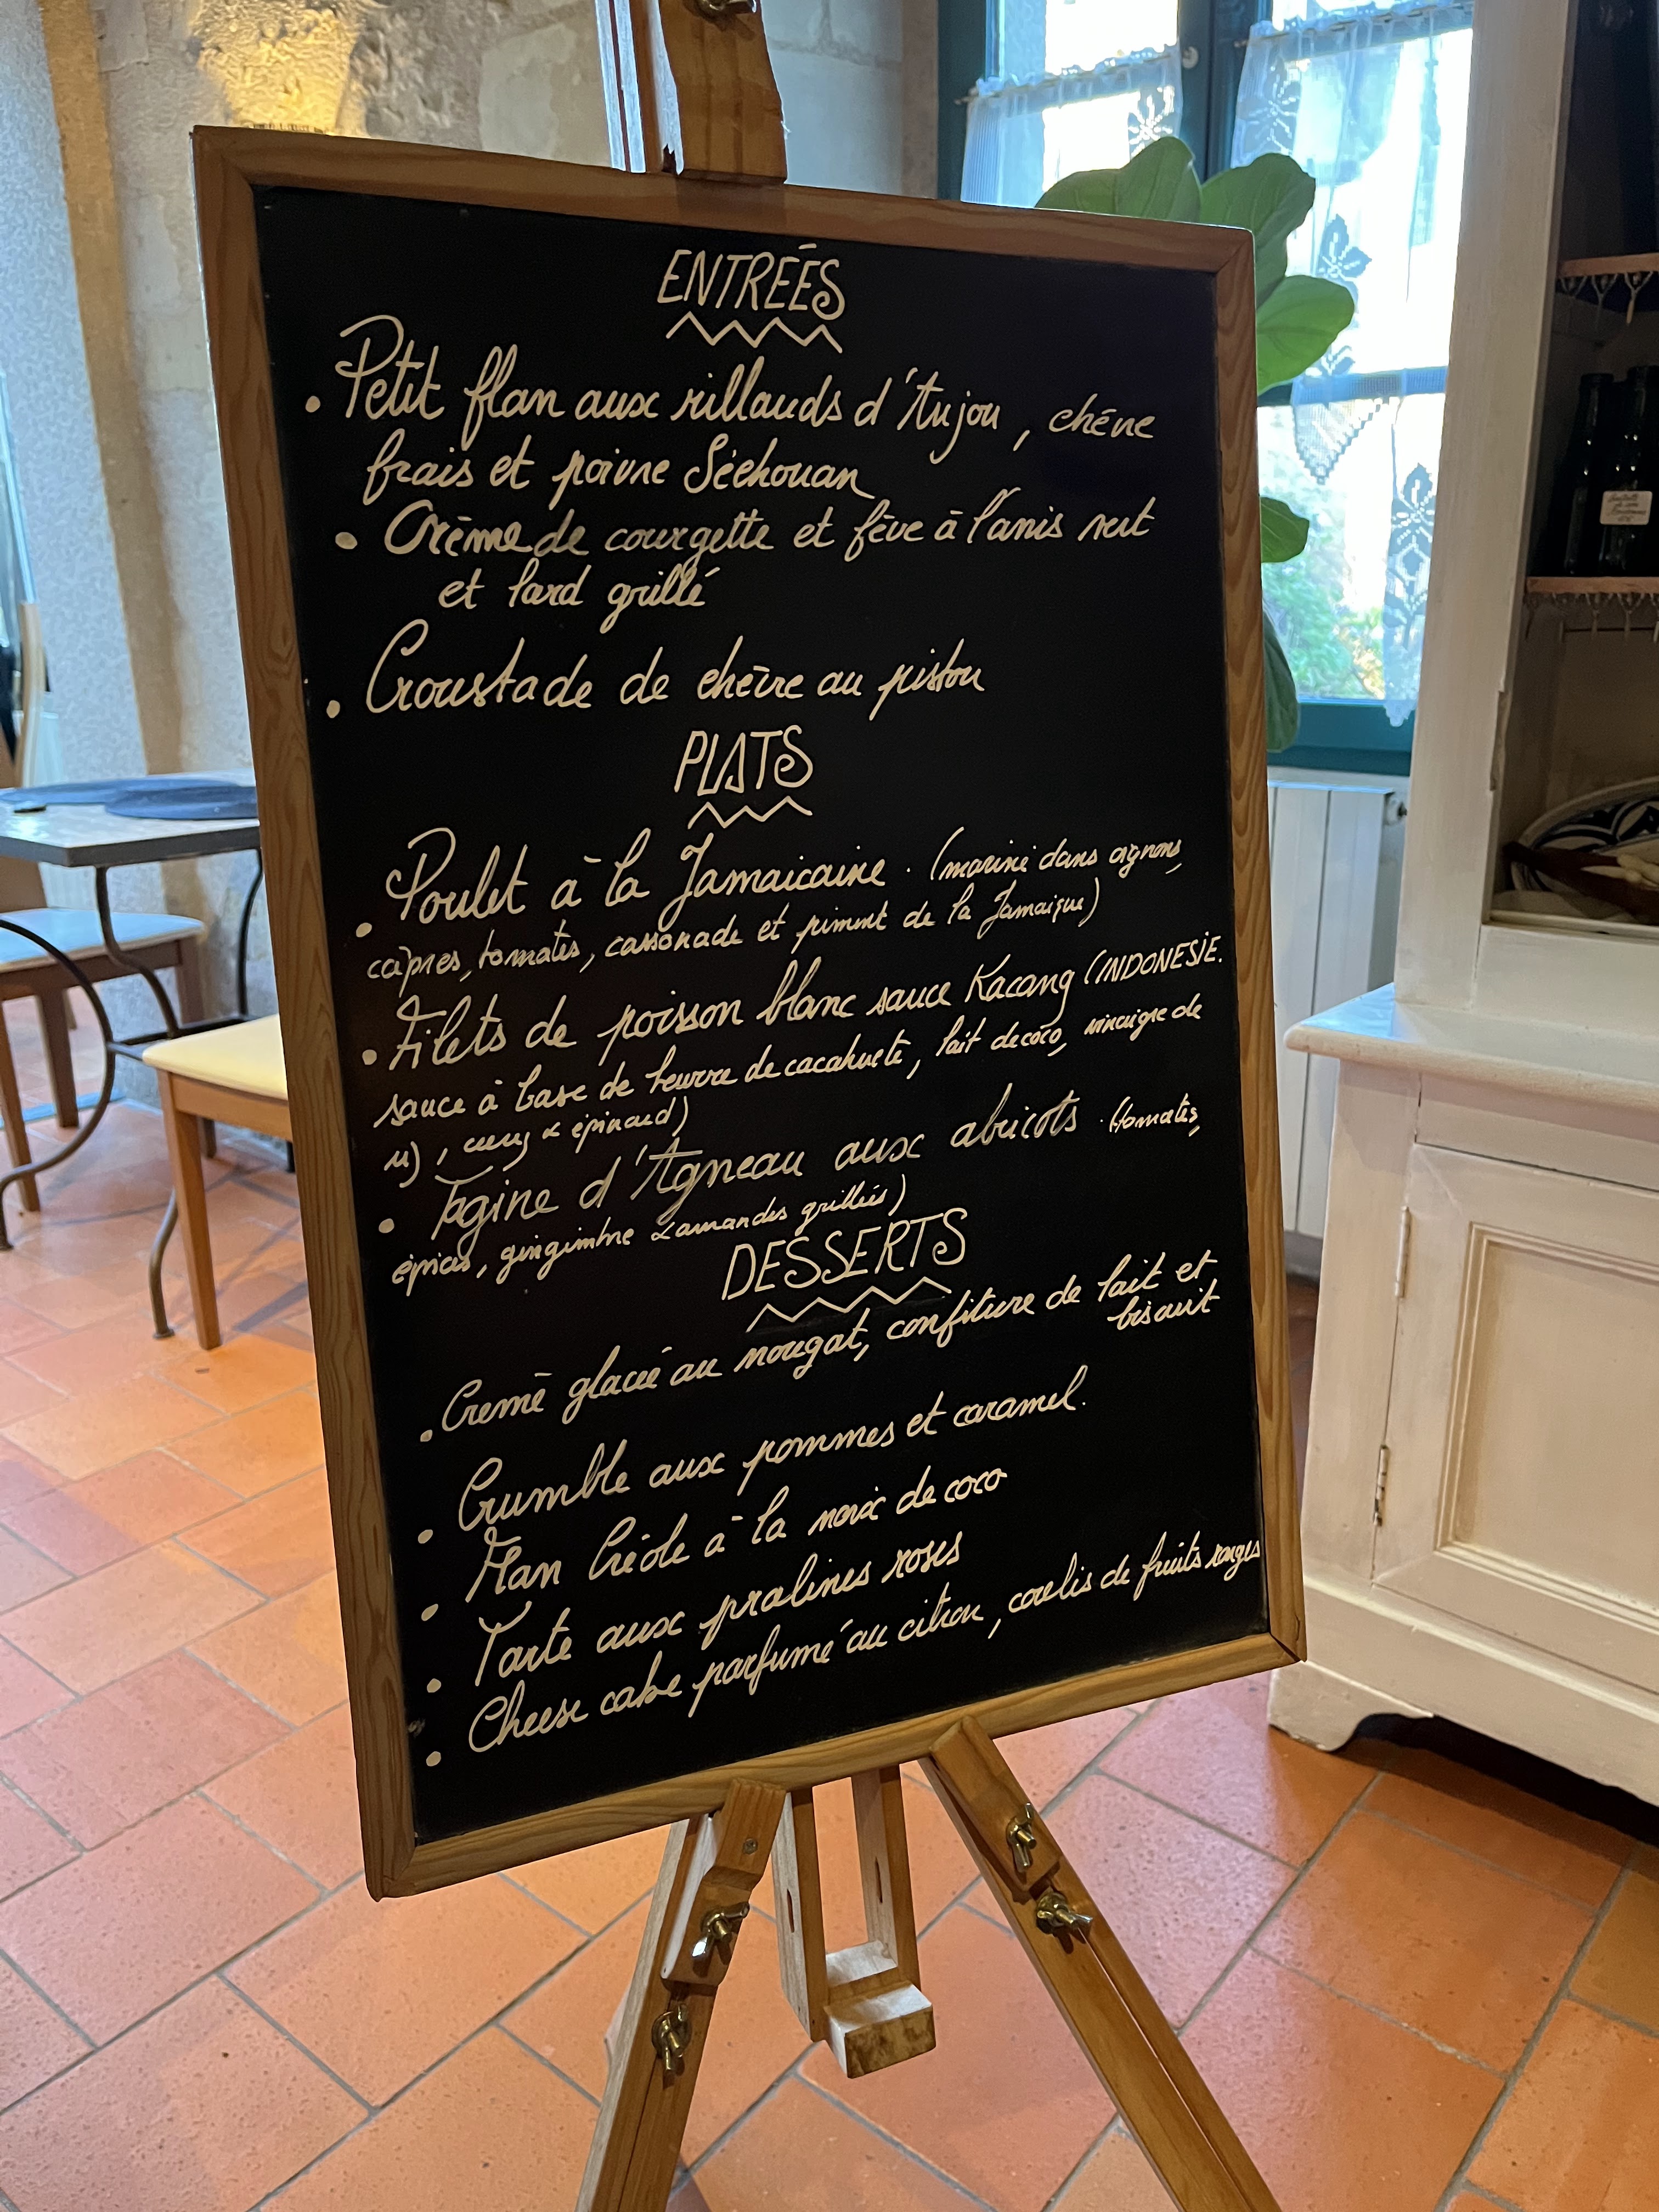 ENTRÉES
. Petit flan aux rillauds d'Anjou, chèvre
frais et poivre Séchouan
. Crème de courgette et fève à l'anis vert
et lard grillé
. Croustade de chèvre au pistou
PLATS
. Poulet à la Jamaicaine. (mariné dans oignons,
câpres, tomates, cassonade et piment de la Jamaïque)
. Filets de poisson blanc sauce Kacang (INDONESIE.
sauce à base de beurre de cacahuete, lait de coco, vinaigre de
riz), curry & épinard)
. Tagine d'Agneau aux abricots. (tomates,
épices, gingimbre & amandes grillées)
DESSERTS
. Creme glacée au nougat, confiture de lait et
biscuit
. Crumble aux pommes et caramel.
. Flan Créole à la noix de coco
. Tarte aux pralines roses
. Cheese cake parfumé au citron, coulis de fruits rouges